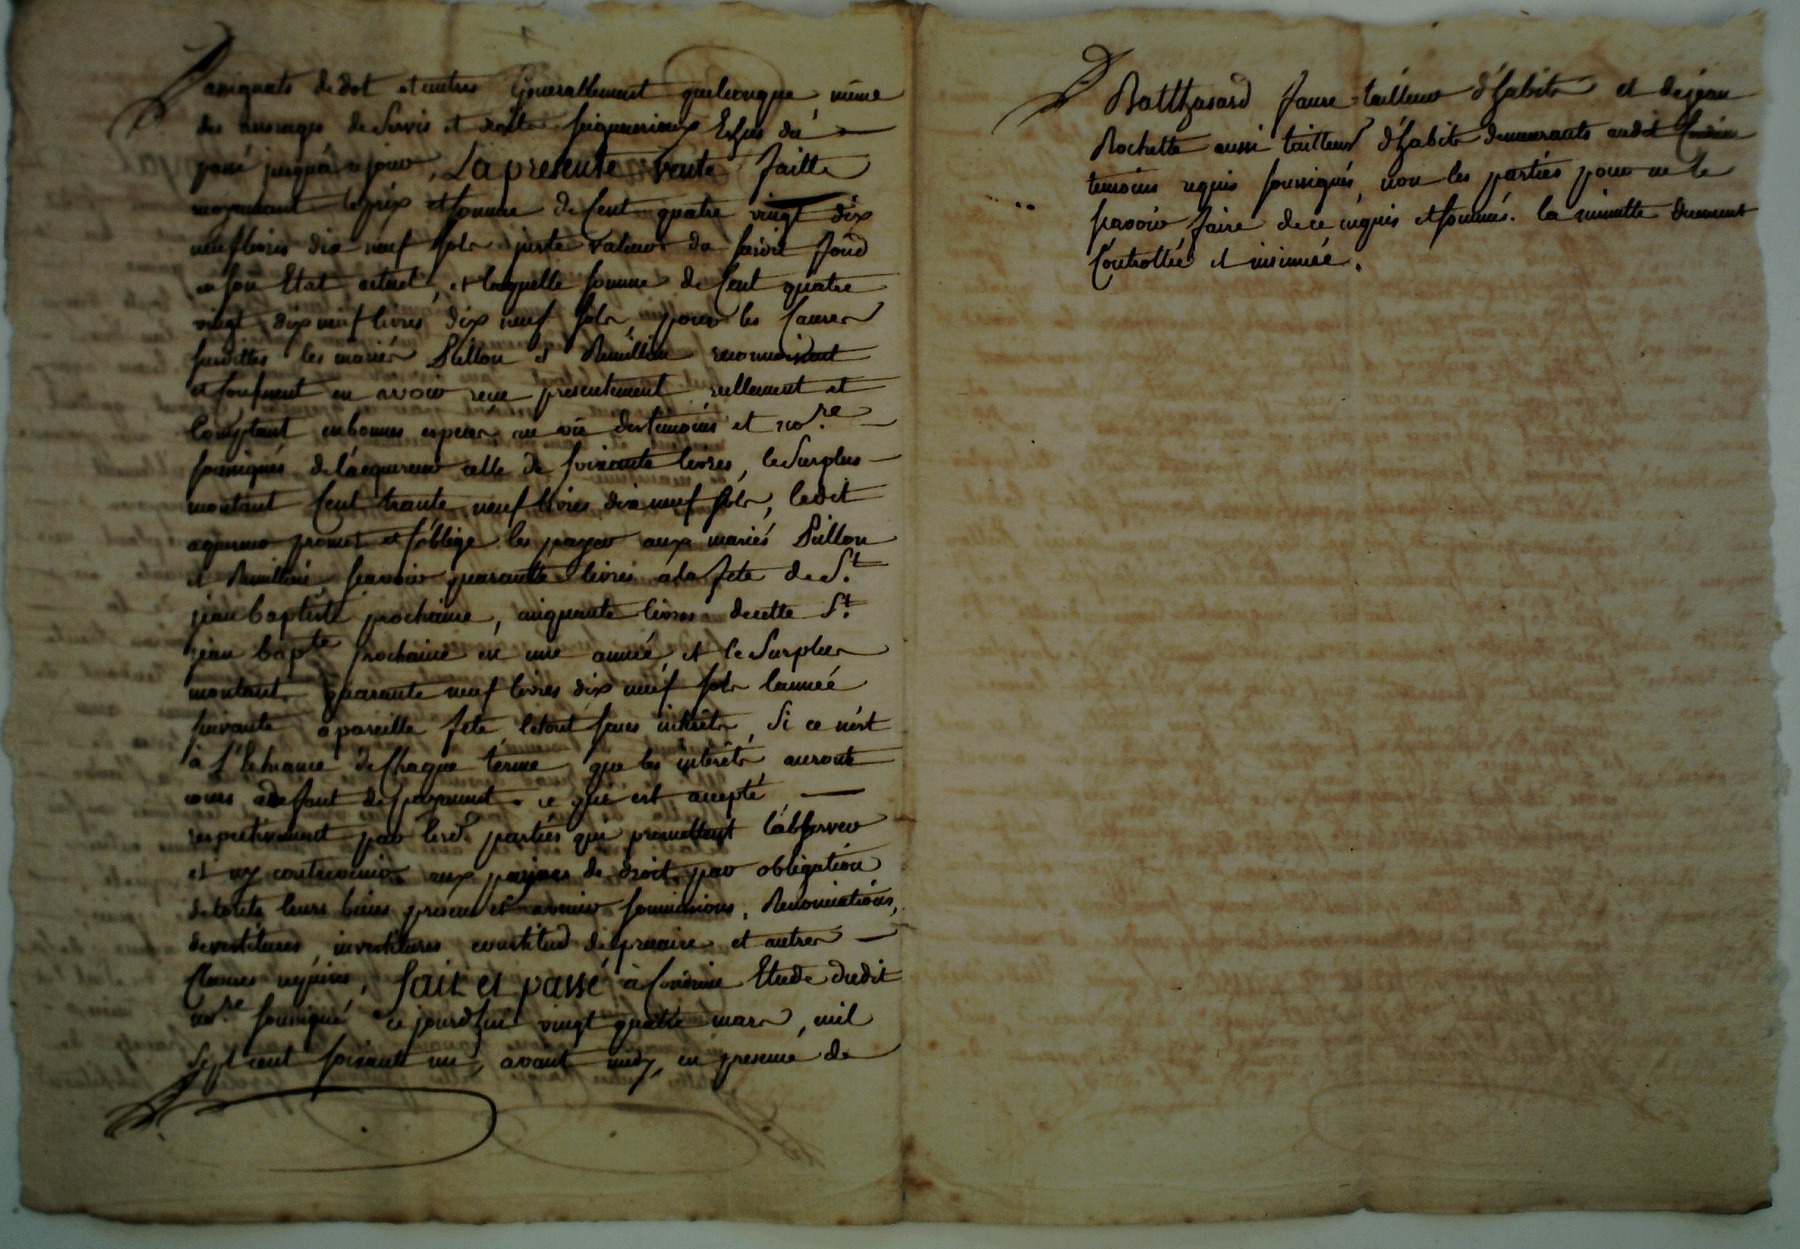 assignats de dot et autres Generallement quelconque, même
des arrerages de Servis et droits seigneuriaux Echus du
passé jusqu'à ce jour, La presente vente faitte
moyennant le prix et somme de Cent quatre vingt dix
neuf livres dix neuf sols juste valeur du susdit fond
en son Etat actuel, et laquelle somme de Cent quatre
vingt dix neuf livres dix neuf sols, pour les causes
susdittes les mariés et reconnoissent
et confessent en avoir reçu presentement réellement et
Comptant en bonnes especes au vû des temoins et no.re
soussignés de l'acquereur celle de soixante livres, le Surplus
montant Cent trante neuf livres dix neuf sols, ledit
aquereur promet et s'oblige les payer aux mariés
et sçavoir quarante livres à la fete de S.t
jean baptiste prochaine, cinquante livres de cette S.t
jean bapte prochaine en une année, et le Surplus
montant quarante neuf livres dix neuf sols l'année
suivante a pareille fete, le tout sans intérêts, Si ce n'est
à L'Echeance de Chaque terme que les intérêts auront
cours a deffaut de payement. ce qui est accepté
respectivement par lesd. parties qui promettent l'observer
et n'y contrevenir aux peines de droit par obligation
de touts leurs biens presens et avenir soumissions, Renonciations,
devestitures, investitures constitud de precaire et autres
Clauses requises, fait et passé à Condrieu Etude dudit
no.re soussigné ce jourd'hui vingt quatre mars, mil
Sept cent soixante un, avant midy, en presence de
Balthazard faure tailleur d'habits et de jean
Rochette aussi tailleur d'habits demeurants audit Condrieu
temoins requis soussignés, non les parties pour ne le
sçavoir faire de ce enquis et sommés. la minutte duement
Controllée et insinuée.